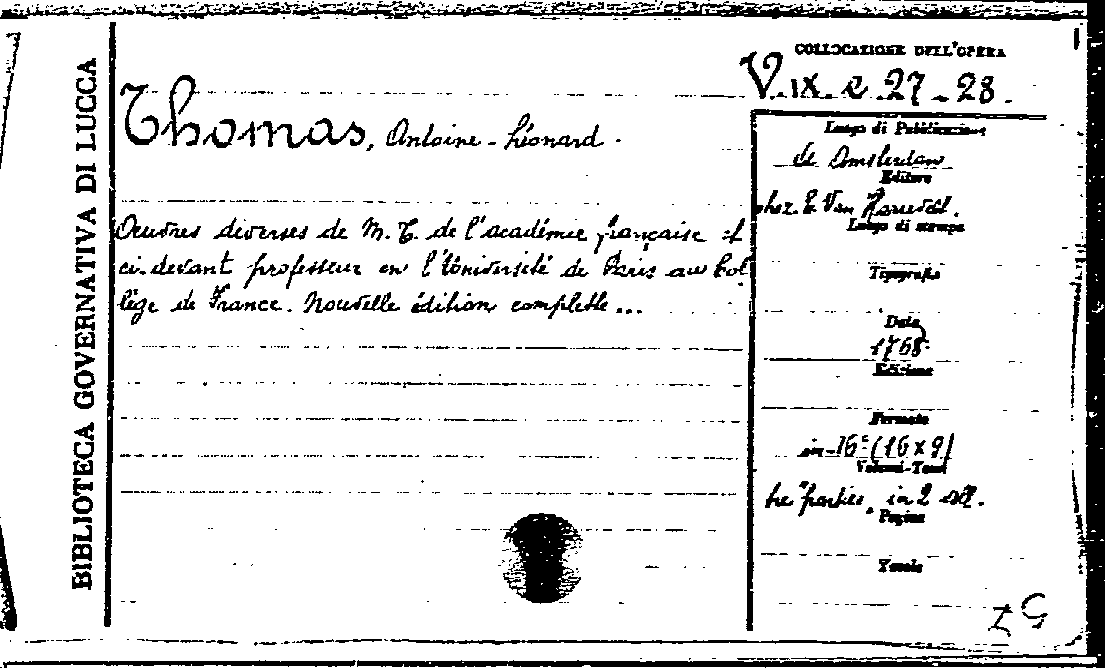 BIBLIOTECA GOVERNATIVA DI LUCCA
COLLOCAZIONE DELL'OPERA
V. IX. e. 27 - 28.
Thomas, Antoine-Léonard.
Oeuvres diverses de M. T. de l'académie française et
ci-devant professeur en l'Université de Paris au Col
lège de France. Nouvelle édition complette...
Luogo di Pubblicazione
de Amsterdam
Editore
chez. E. Van
Luogo di stampa
Tipografia
Data
1768
Edizione
Formato
in-16° (16 x 9)
Volumi-Tomi
parties, in 2 vol.
Pagine
Tavole